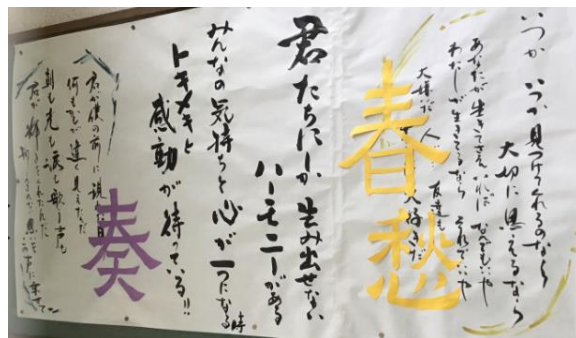 いつか いつか見つけられるのなら
大切に思えるなら
あなたが生きてさえいれば なんでもいいや
わたしが生きてるなら それでいいや
友達も
大好きだ
春愁
君たちにしか生み出せない
ハーモニーがある
みんなの気持ちと心が一つになる時
トキメキと
感動が待っている!!
奏
君が僕の前に現れた日から
何もかもが違く見えたんだ
朝も光も涙も歌う声も
君が輝きをくれたんだ